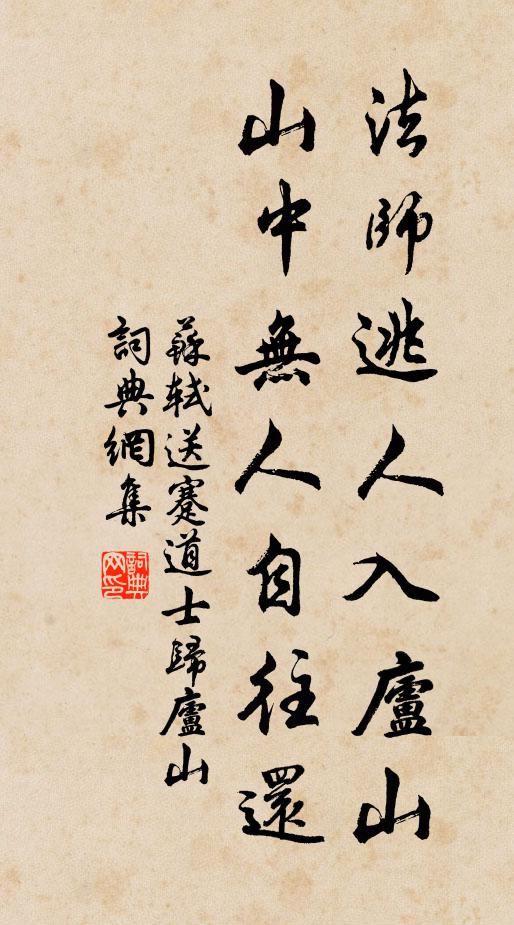 法師逃人入廬山
山中無人自往還
蘇軾送蹇道士歸廬山
詞典網集
詞典網印